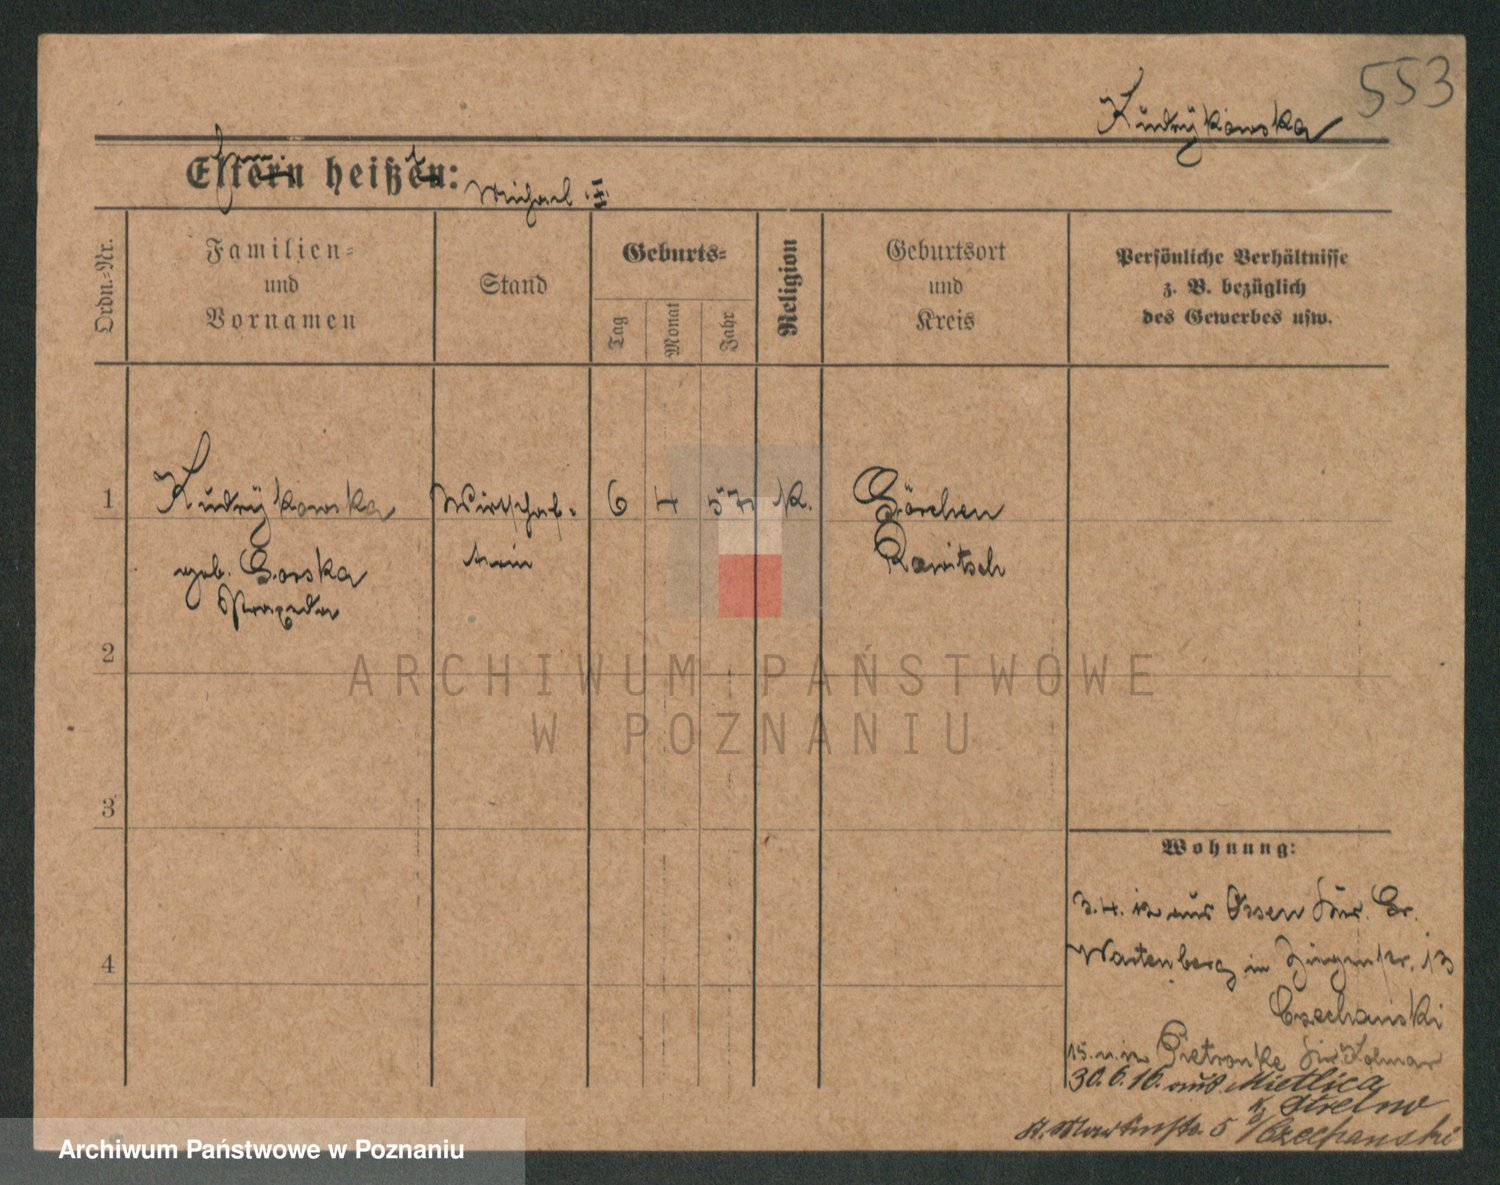 553
Kudrykowska
Eltern heißen:
Michael
Ordn.-Nr.
Familien-
und
Vornamen
Stand
Geburts-
Tag
Monat
Jahr
Religion
Geburtsort
und
Kreis
Persönliche Verhältnisse
z. B. bezüglich
des Gewerbes usw.
1 Kudrykowska Wirtschaf- 6 4 57 k. Görchen
geb. Gorska Rawitsch
Praxeda
2
ARCHIWUM PAŃSTWOWE
W POZNANIU
3
Wohnung:
3.4. aus Ossen Gr.
4
Wartenberg in 13
Czechanski
15. Pietronke Kolmar
30.6.16. aus Mietlica
Strelno
St. Martinstr. 5 Czechanski
Archiwum Państwowe w Poznaniu